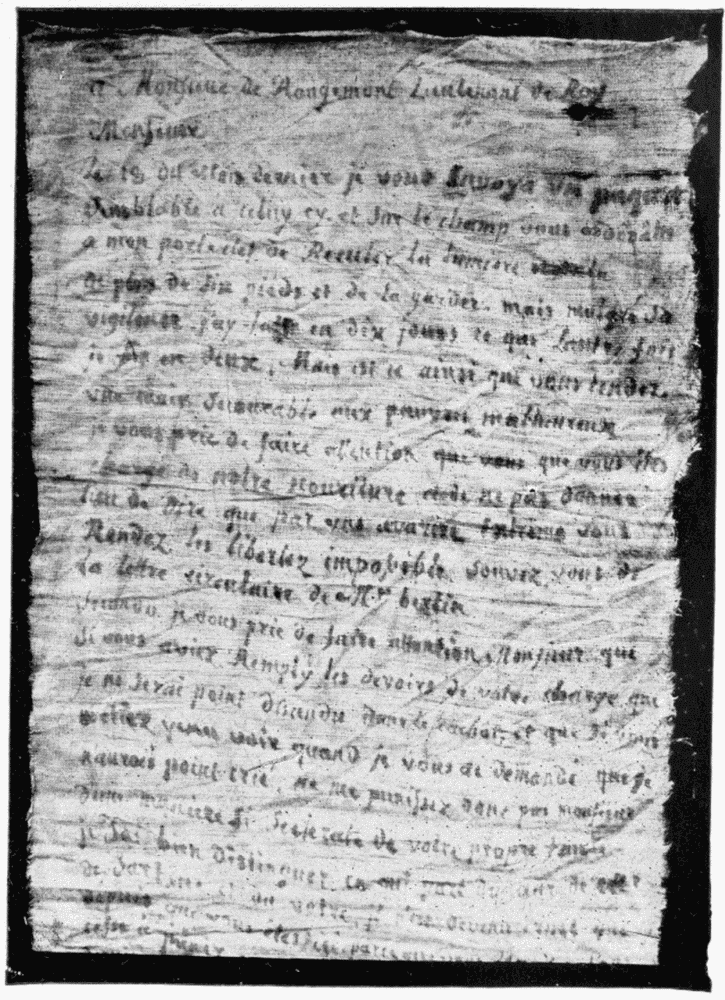 a Monsieur de Rougemont Lieutenant de Roy
Monsieur
Le 18 du mois dernier je vous envoya un paquet
semblable a celuy cy et sur le champ vous ordonates
a mon porteclef de Reculer la lumiere
de plus de six pieds et de la garder. mais malgré sa
vigilence j'ay fait en dix jours ce que lautre fois
je fis en deux. Mais est ce ainsi que vous tendez
une main secourable aux pauvres malheureux
je vous prie de faire attention que vous que vous etes
chargé de notre nourriture et de ne pas donner
lieu de dire que par une avarice extreme vous
Rendez les libertez impossible. souvez vous de
La lettre circulaire de Mr. bertin
secundo je vous prie de faire attention Monsieur que
si vous aviez Remply les devoirs de votre charge que
je ne serai point dessendu dans le cachot, et que si vous
etiez venu voir quand je vous ai demandé que je
naurois point crié. ne me punissez donc pas monsieur
dune maniere si scelerate de votre propre faute
je sai bien distinguer ce qui part du de
de Sartine et du votre,
depuis que vous etes icy parce que